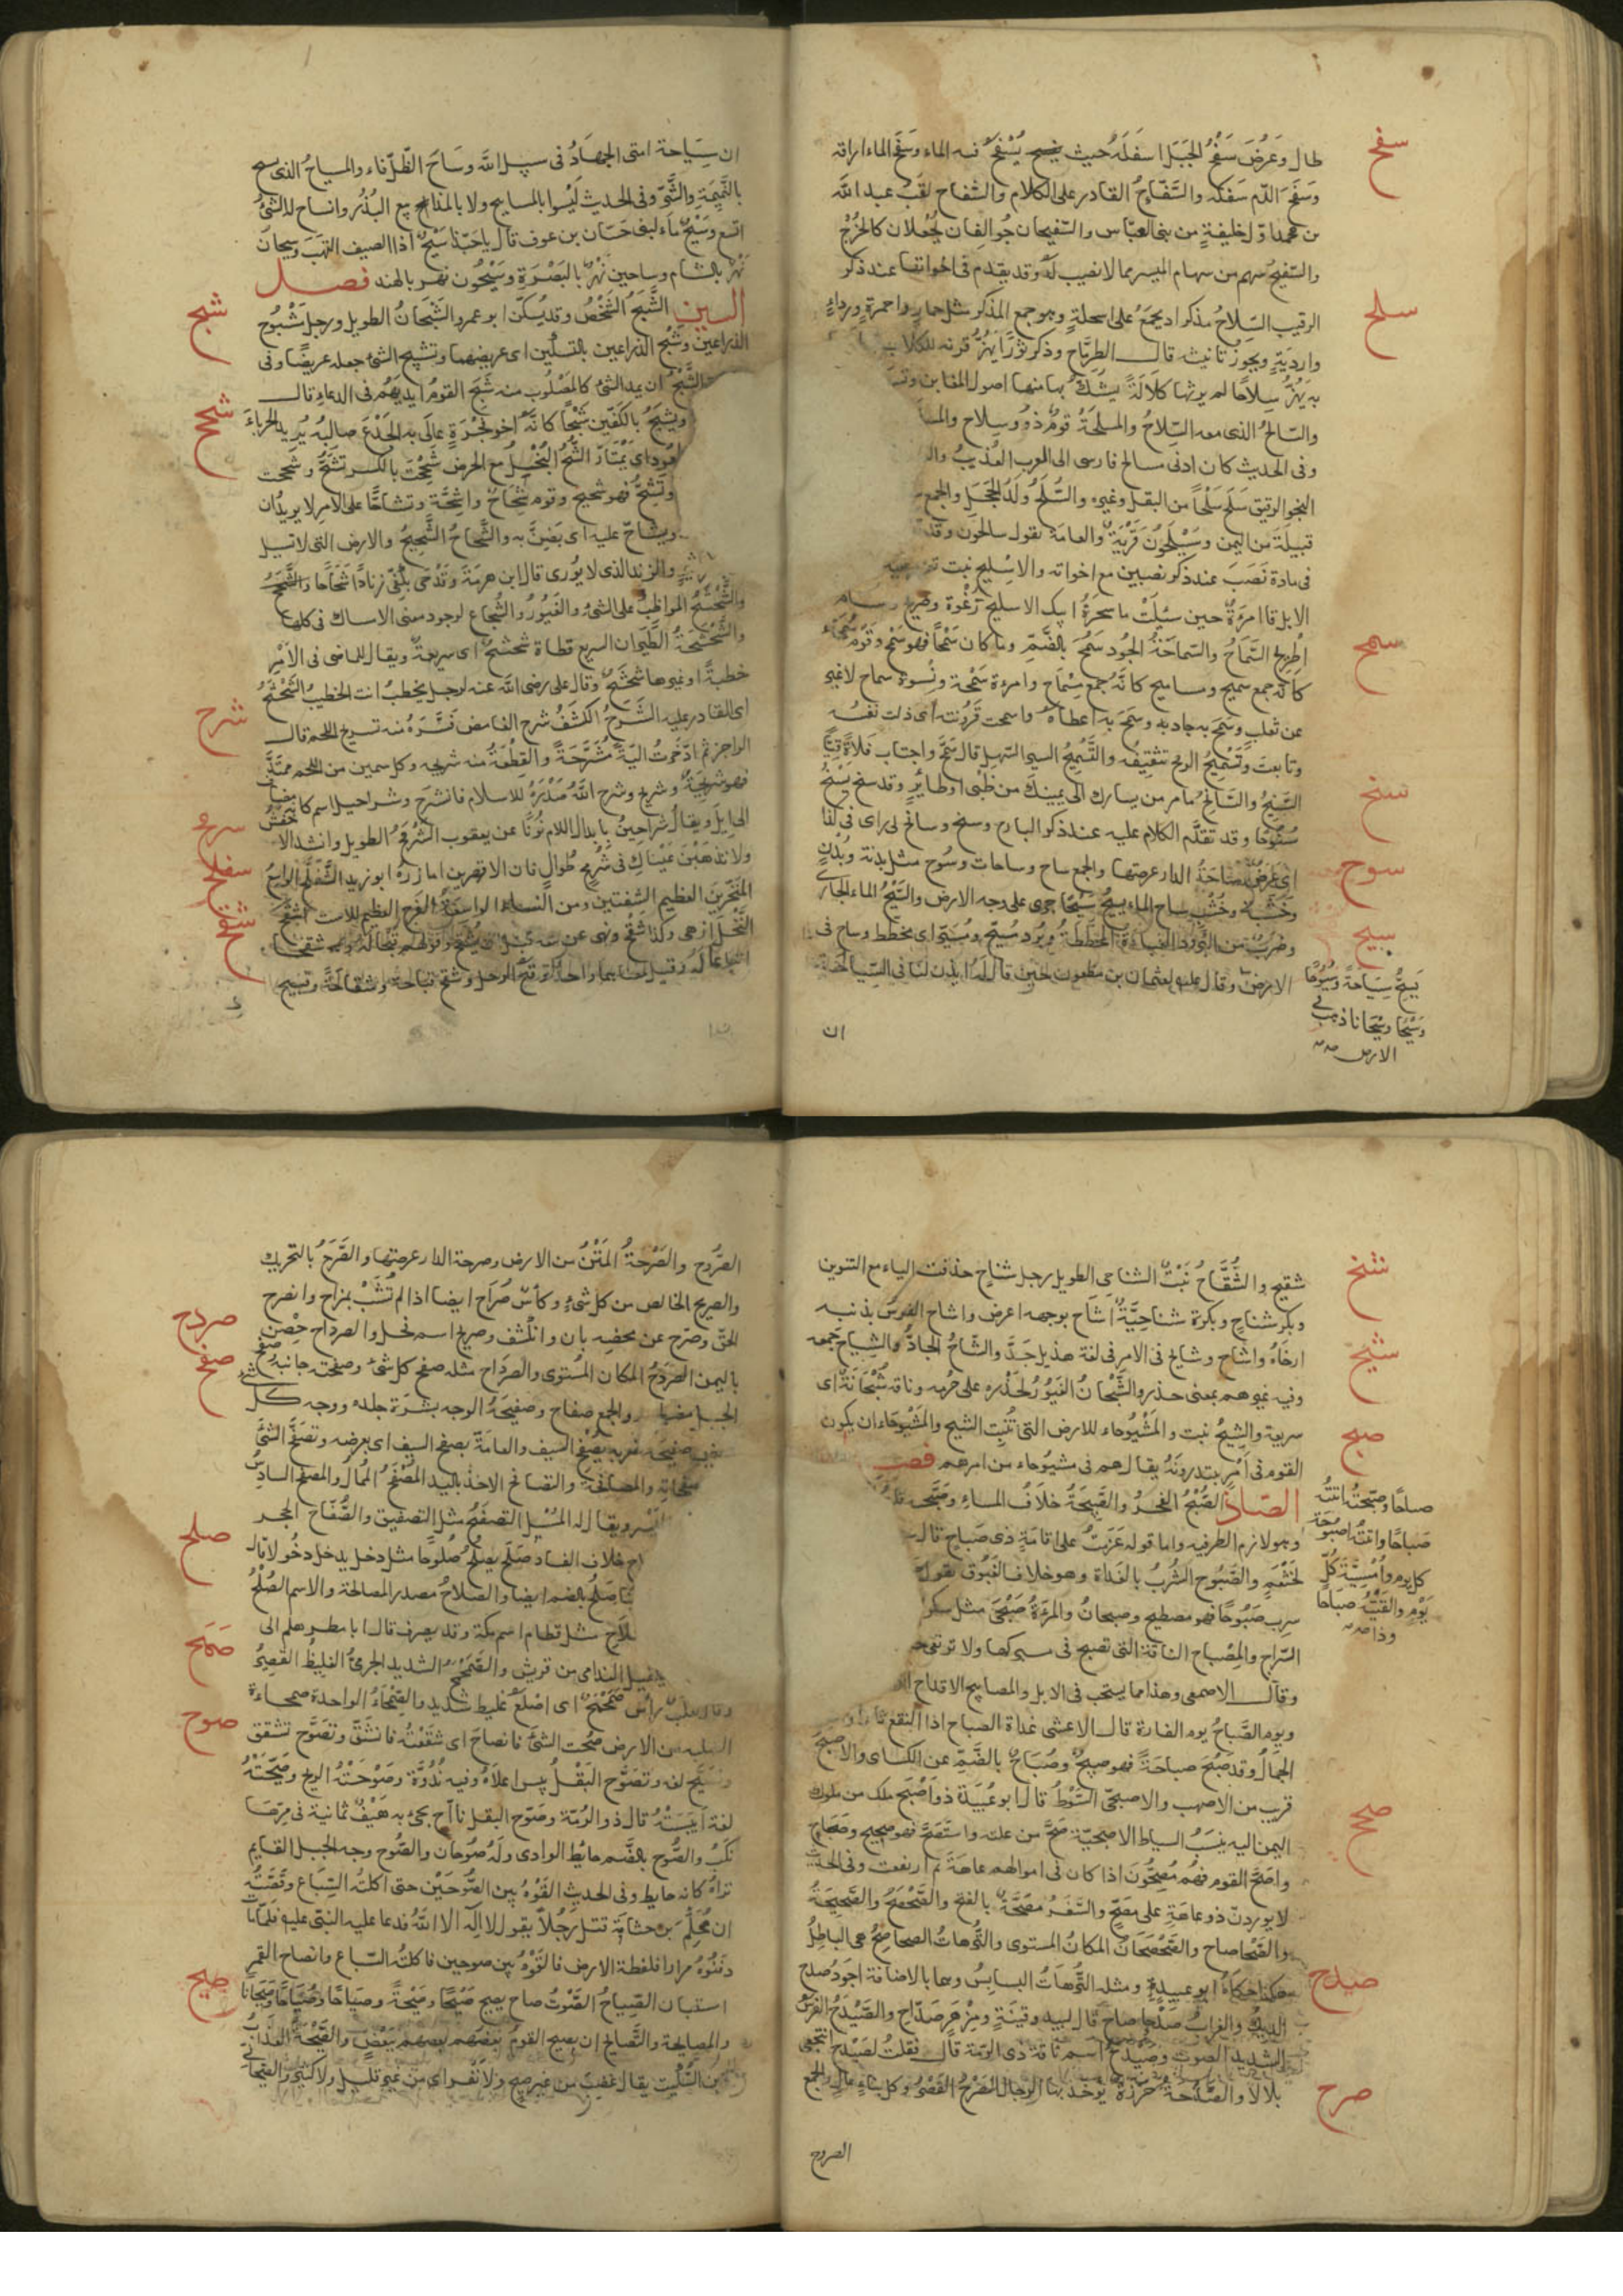 سفح
طال وعرض سَفْحُ الجبَل اسفَلَهُ حيث يسفح فيه الماء وسَفَحَ الماء اراقه
وسَفَحَ الدّم سَفكه والسَّفّاحُ القادر على الكلام والسّفاح لقبُ عبد الله
بن محمد اوّل خليفةٍ من بنى العبّاس والسّفيحان جُوالِقان يُجْعلان كالخُرْجُ
والسّفيحُ سهم من سهام الميسر مما لا نصيب لَهُ وقد يقدم فى اخواتها عند ذكر
سلح
الرقيب السِّلاحُ مذكر اذ يجمَعُ على اسلحةٍ وهو جمع المذكر مثل حمارٍ واحمرةٍ ورداءٍ
وارديَةٍ ويجوزُ تانيثه قال الطِرِمّاح وذكر ثورًا يَهُزُّ قرنه للكلاب
به يَهُزُّ سِلاحًا لم يرثها كلالَةً يَشُكُّ بها منها اصول المغابن
والسّالحُ الذى معه السّلاحُ والمسلحَةُ قومٌ ذوو سلاح
وفى الحديث كان ادنى مسالح فارسى الى العرب العُذيبُ
النجو الرقيق سَلَح سَلْحًا من البقل وغيره والسُّلَحُ وَلَدُ الحَجَل والجمع
قبيلَة من اليمن وسَيْلَحُونُ قَرْيَةٌ والعامة تقول سالحون
فى مادة نَصَبَ عند ذكر نصيبين مع اخواته والاسْليح نبت
الابل قالت امرءةٌ حين سُئِلَتْ ما شجرةُ ابيك الاسليح رَغْوة وصريح
سمح
اِطْريح السَّماحُ والسّماحَةُ الجُود سَمُحَ بالضَّمِّ وما كان سَمْحًا فهو سَمْح وقومٌ سُمَحَاء
كانه جمع سميح ومساميح كانّهُ جمع مِسْمَاحٍ وامرءة سَمْحة ونِسوة سماح لاغير
عن ثعلب وسَمَحَ به جاد به وسَمَحَ به اعطاه واسمحت قَرُونته اى ذلت نفسُه
وتابعت وتَسْمِيحُ الرمح تثقيفه والتَّسْمِيحُ السير السّهل قال سَمَّحَ واجتاب فَلاةً قِيًّا
سنح
السَّنِيحُ والسَّانِحُ مامر من يسارك الى يمينك من ظَبْى او طائرٍ وقد سنح يسْنحُ
سُنُوحًا وقد تقدَّم الكلام عليه عند ذكر البارح وسنح وسانح لى راى فى كذا
سوح
اى عرَضَ سَاحَةُ الدار عرصتها والجمع ساح وساحات وسُوح مثل بدنة وبُدْنٍ
سيح
وخَشَبٍ وخُشْبٍ ساح الماء يسيحُ سَيْحًا جرى على وجه الارض والسَّيْحُ الماء الجارى
وضربٌ من البُرُود العباءة المخططة وبُرْد مُسَيَّح ومُسَيَّر اى مخطط وساح فى
الارض وقال عليه لعثمان بن مظعون حين قال لَهُ ايذن لنا فى السِّياحة
يَسِيحُ سِيَاحَةً وسُيُوحًا
وسَيْحًا وسَيَحَانا ذهب فى
الارض صح
ان
ان سِيَاحة امتى الجهادُ فى سبيل الله وسَاحَ الظّل فاء والمسياحُ الذى يسيح
بالنَّمِيمَةِ والشَّرّ وفى الحديث ليْسُوا بالمساييح ولا بالمذاييع البُذُر وانساح لَهُ الشئُ
اتسع وسَيْحٌ ماء لبنى حَسّان بن عوف قال يا حَبّذا سَيْحٌ اذا الصيف التهَبَ وسيحان
نَهْرٌ بالشام وساحين نَهْرٌ بالبَصْرَةِ وسَيْحُون نهر بالهند فصل
شبح
الشين الشَّبَحُ الشَّخْصُ وقد يُسكّن ابو عمرو الشَّبْحانُ الطويل ورجل مَشْبُوح
الذراعين وشَبْحُ الذراعين بالتسكين اى عريضهما وتشبيح الشئ جعله عريضًا وفى
الشَّبْح ان يمد الشئ كالمصْلُوب منه شَبَحَ القومُ ايديَهُم فى الدعاءِ قال
ويشبَحُ بالكَفّين شَبْحًا كانّه اخو فَجْرَةٍ عالَى به الجِذْعَ صالِبُه يُريد الحِرْباءَ
شحح
الشُّحُّ البُخْلُ مع الحرص شَحِحْتَ بالكسر تشَحُّ وشَحَحت
وتَشِحُّ فهو شحيح وقوم شِحَاحٌ واَشِحَّة وتشاحّا على الامر لا يريدان
ويشاحّ عليه اى يَضِنُّ به والشَّحاحُ الشَّحِيحُ والارض التى لا تسيل
والزند الذى لا يُورى قال ابن هرمَةَ وقَدْحى بكَفّى زنادًا شَحَاحًا والشَّحْشَحُ
والشَّحْشَحُ المواظبُ على الشئ والغَيُورُ والشُجاع لوجود معنى الامساك فى كلها
والشَّحْشَحَةُ الطّيران السريع قطاة شَحْشَحٌ اى سريعةٌ ويقال للماضى فى الامْر
خطبةً او غيرها شَحْشَح وقال على رضى الله عنه لرجل يخطبُ انت الخطيبُ الشَّحْشَحُ
شرح
اى القادر عليه الشَّرحُ الكَشْفُ شرح الغامض فَسَّرَهُ منه تشريح اللحم قال
الراجز ثم ادّخرت اليَةً مُشَرّحَةً والقِطْعَةُ منه شريحه وكل سمين من اللحم ممتَدّ
فهو شريحَةٌ وشريح وشرح اللهُ صَدْرَهُ للاسلام فانشرح وشراحيل اسم كانه مضاف
الى ايل ويقالُ شَراحينُ بابدال اللام نُونًا عن يعقوب الشَّرْمَحُ الطويل وانشد الاخفش
ولا تذهَبَنَّ عَيْناكِ فى شَرْمَحٍ طُوالٍ فان الاقصرين امازرُهُ ابو زيد الشَّفَلّحُ الواسع
المنخرين العظيم الشفتين ومن النساء الواسعة الفرج العظيم للاست اشْقَحَ
النَّخْلُ ازهى وكذا شَقّحَ ونهى عن بيعه قَبْلَ ان يُشَقّح وقولهم قُبحا له وشقحا
اتباعا له وقيل هما واحد قَبُحَ الرجل وشَقُحَ قباحة وشَقاحَةً وقبيح
شنح
شقيح والشُّقَّاحُ نَبْتٌ الشناحِى الطويل رجل شَناحٍ حذفت الياء مع التنوين
وبكر شناحٍ وبكرة شناحيَّةٌ اشَاح بوجهه اعرض واشاح الفرسُ بذنبه
شيح
ارخَاهُ واشاح وشايح فى الامر فى لغة هذيل جَدَّ والشّاحُ الجادُّ والشِياحُ جمعه
وفيه غيرهم بمعنى حذر والشَّيْحانُ الغَيُورُ لحَذَره على حُرمه وناقة شَيْحانةٌ اى
سريعة والشِّيحُ نبت والمَشْيُوحاء للارض التى تُنْبِت الشيح والمَشْيُوحاء ان يكون
القوم فى اَمْرٍ يبتدرونَهُ يقال هم فى مشيُوحاء من امرهم فصل
صبح
الصاد الصُّبْحُ الفجرُ والصَّبِيحَةُ خلافُ المساءِ وصَبَّحَه
وهو لازم الظرفيه واما قوله عَزمتُ على اقامَةِ ذى صَباح قال
لخَثْعَمٍ والصَّبُوح الشُربُ بالغَداة وهو خلاف الغَبُوق تقول
شرب صَبُوحًا فهو مصطبح وصبحانُ والمرءة صَبْحَى مثل سكر
السّراج والمِصْباح الناقة التى تصبح فى مبركها ولا ترتعى
وقال الاصمعى وهذا مما يستحب فى الابل والمصابيح الاقداح
ويوم الصَّباحُ يوم الغارة قال الاعشى غداة الصباح اذا النقع ثارا
الجمالُ وقد صَبُحَ صباحَةً فهو صبيحٌ وصُبَاحٌ بالضَّمِّ عن الكسائى والاصبحَ
قريب من الاصهب والاصبحىّ السَّوْطُ قال ابو عُبيَدة ذو اَصْبَح ملك من ملوك
صحح
اليمن اليه ينسَبُ السياط الاصبحيّة صَحَّ من علته واستَصَحَّ فهو صحيح وصَحَاح
واصَحَّ القوم فهُم مُصِحُّونَ اذا كان فى اموالهم عاهَةَ ثم ارتفعت وفى الحديث
لا يوردنّ ذو عاهَةٍ على مُصِحٍّ والسَّفَرُ مصَحّةٌ بالفتح والصَّحْصَحُ والصَّحِيحَةُ
والصَّحصاح والصَّحْصَحَانُ المكانُ المستوى والتُّرهاتُ الصحاصِحُ هى الباطِلُ
صدح
هكذا حكاهُ ابو عبيدةٍ ومثله التُّرهَاتُ البسابِسُ وهما بالاضافة اجوَدُ صدح
الديكُ والغرابُ صَدْحًا صاح قال لبيد وقينَةٍ ومِزْهَرٍ صَدّاح والصَّيْدَحُ الفرَسُ
الشديد الصوت وصَيْدَحُ اسم ناقة ذى الرّمّة قال فقلتُ لصَيْدحَ انتجعى
صرح
بلالا والصَّدَحَةُ خرزةٌ يؤخذ بها الرجال الصرْحُ القَصْرُ وكل بناءٍ عالٍ والجمع
صباحًا وصبّحتُه اتيتُهُ
صباحًا واتيتُه اصْبُوحَة
كل يوم واُمْسِيَّةَ كُلّ
يَوْمٍ ولقيْتُه صباحًا
وذا صح
الصروح
الصُّرُوح والصَرْحَةُ المَتْنُ من الارض وصرحة الدار عرصتها والصَّرَحُ بالتحريك
والصريح الخالص من كل شئ وكأسٌ صُرَاح ايضا اذا لم تُشَبْ بمزاج وانصرح
صردح
الحقّ وصرّح عن محضِه بان وانكشف وصريح اسم فحل والصرداح حِصْن
صفح
باليمن الصَّرْدَحُ المكان المُستوى والصِرْدَاح مثله صفح كل شئ وصفحته جانبهُ
والجمع صفاح وصَفيحَةُ الوجه بشَرَة جلده ووجه كل
بصَفْح السيف والعامةُ بصفح السيف اى بعرضه وتصَفَّحَ الشئَ
والمصافحة والتصافح الاخذ باليد المُصْفَحُ المُمالُ والمصفح السادسُ
ويقال له المُسْبِل التصفيح مثل التصفيق والصُّفّاح الحجر
صلح
الصلاح خلاف الفساد صَلَح يصْلُحُ صُلُوحًا مثل دخل يدخل دخُولا قال
صَلُحَ بالضم ايضا والصلاحُ مصدر المصالحة والاسم الصُلْحُ
صَلاحِ مثل قطامِ اسم مكة وقد يصرف قال ابا مطرٍ هلم الى
صمح
الندامى من قريش والصَمَحْمَحُ الشديد الجرئُ الغليظُ القصيرُ
وقال ثعلب رأسٌ صَمَحْمَحٌ اى اصْلَعُ غليظ شديد والصِّمْحَاءُ الواحدة صمحاءة
صوح
الصلبه من الارض صُحت الشئَ فانصاحَ اى شقَقْتُه فانشَقّ وتصَوَّح تشقق
وتصَيَّح لغه وتصَوَّح البَقْلُ يبس اعلاهُ وفيه نُدُوّة وصَوَّحَتْهُ الريح وصَيَّحَتْهُ
لغة اَيْبَسَتْهُ قال ذو الرُمّة وصَوّح البقل نأآج يجئ به هَيْفٌ ثمانية فى مرّها
نَكَبُ والصُّوح بالضَّم حايط الوادى ولَهُ صُوحان والصُّوح وجه الجبل القايم
تراهُ كانه حايط وفى الحديث القَوْهُ بين الصُّوحَيْن حتى اكلتُه السِّبَاع وقصَّتُه
ان مُحَلّم بن جثامَة قتل رَجُلًا يقول لا اِلَهَ الا اللهُ فدعا عليه النبى عليه فلمّا مات
دفَنُوهُ مرارا فلفظة الارض فالقَوْهُ بين صوحين فاكلتُه السّباع وانصاح القمر
صيح
استبان الصِّياحُ الصَّوْتُ صاح يصيح صَيْحًا وصَيْحَةً وصِيَاحًا وصُيَاحًا وصَيَحَانًا
والمصايحة والتَّصايح ان يصيح القومُ بعضهم ببعضٍ والصَّيْحَةُ العذابُ
بن السِّكيت يقال غَضِبَ من غير صيح ولا نَفْرٍ اى من غير قليل ولا كثير والصّيْحانى